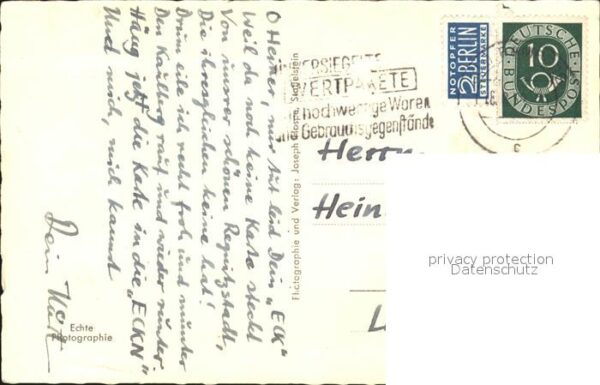 O Heiner, mir tut leid Dein „ECK"
Weil da noch keine Karte steckt
Von unsrer schönen Regnitzstadt,
Die ihresgleichen keine hat!
Drum eile ich recht froh und munter
Den Kaulberg rauf und wieder runter
Häng jetzt die Karte in die „ECKN"
Und mich, mich kannst
Dein
Echte
Photographie
Photographie und Verlag: Joseph
UNVERSIEGELTE
WERTPAKETE
hochwertige Waren
Gebrauchsgegenstände
NOTOPFER
2 BERLIN
STEUERMARKE
DEUTSCHE
10
BUNDESPOST
c
Herrn
Hein
L
privacy protection
Datenschutz